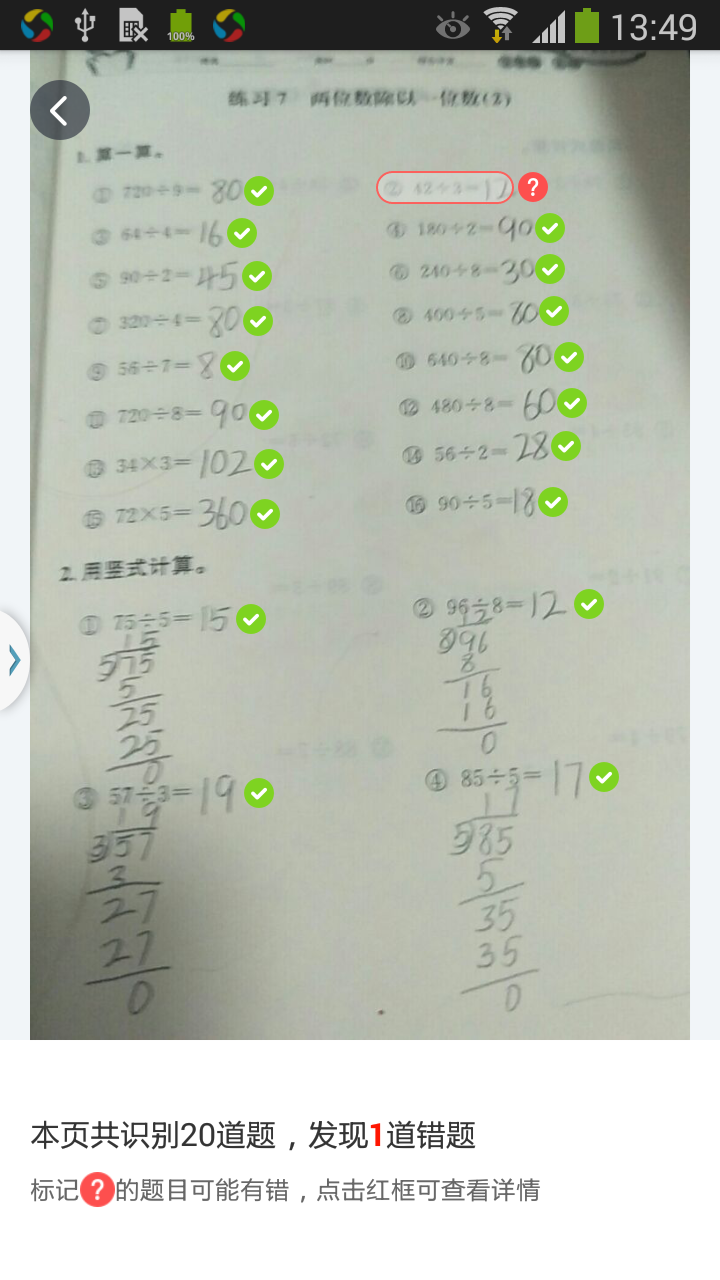 100% 13:49
练习7 两位数除以一位数(2)
1. 算一算。
① 720÷9=80 ② 42÷3=12
③ 64÷4=16 ④ 180÷2=90
⑤ 90÷2=45 ⑥ 240÷8=30
⑦ 320÷4=80 ⑧ 400÷5=80
⑨ 56÷7=8 ⑩ 640÷8=80
⑪ 720÷8=90 ⑫ 480÷8=60
⑬ 34×3=102 ⑭ 56÷2=28
⑮ 72×5=360 ⑯ 90÷5=18
2. 用竖式计算。
① 75÷5=15 ② 96÷8=12
15 12
5)75 8)96
5 8
25 16
25 16
0 0
③ 57÷3=19 ④ 85÷5=17
19 17
3)57 5)85
3 5
27 35
27 35
0 0
本页共识别20道题，发现1道错题
标记?的题目可能有错，点击红框可查看详情